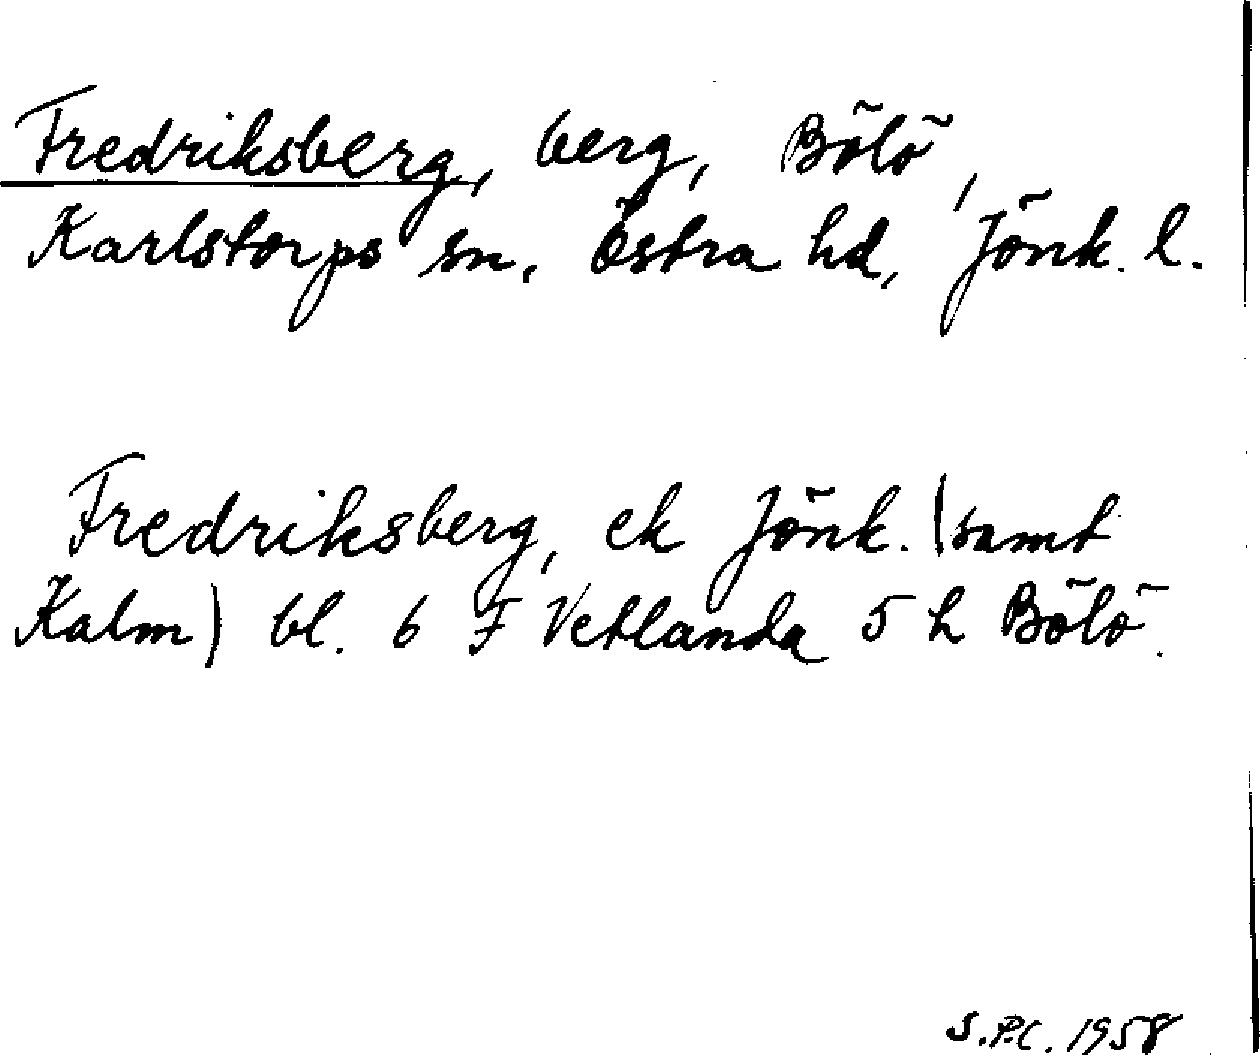 Fredriksberg, berg, Bölö,
Karlstorps sn, Östra hd, Jönk. l.
Fredriksberg, ek Jönk. (samt
Kalm) bl. 6 F Vetlanda 5 h Bölö.
S.P.C. 1958